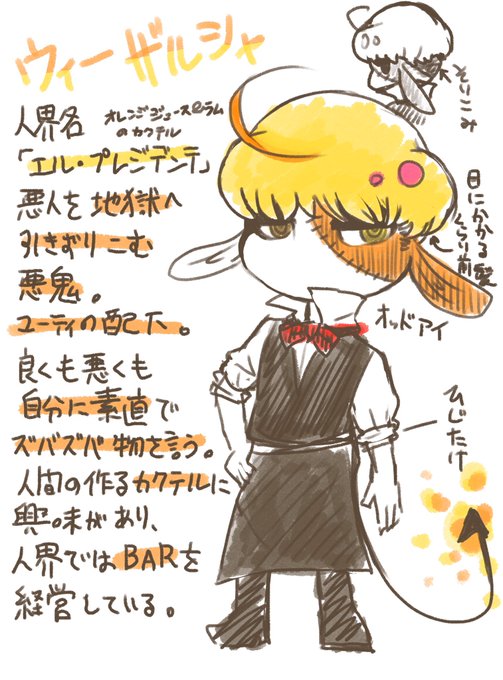 ウィーザルシャ
人界名
オレンジジュース@ラム
のカクテル
「エル・プレジデンテ」
悪人を地獄へ
引きずりこむ
悪鬼。
ユーティの配下。
良くも悪くも
自分に素直で
ズバズバ物を言う。
人間の作るカクテルに
興味があり、
人界ではBARを
経営している。
そりこみ
目にかかる髪
くらり前
オッドアイ
ひじたけ